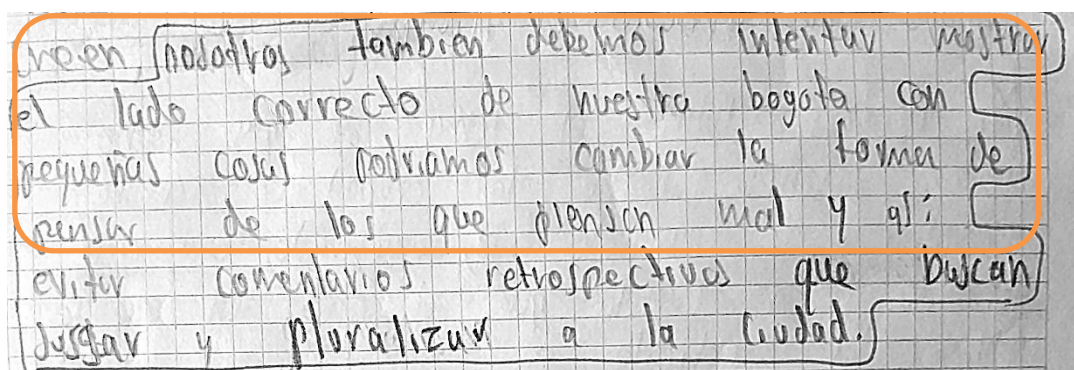 creen, nosotros tambien debemos intentar mostrar
el lado correcto de nuestra bogota con
pequeñas cosas podriamos cambiar la forma de
pensar de los que piensan mal y asi
evitar comentarios retrospectivos que buscan
Jusgar y pluralizar a la Ciudad.